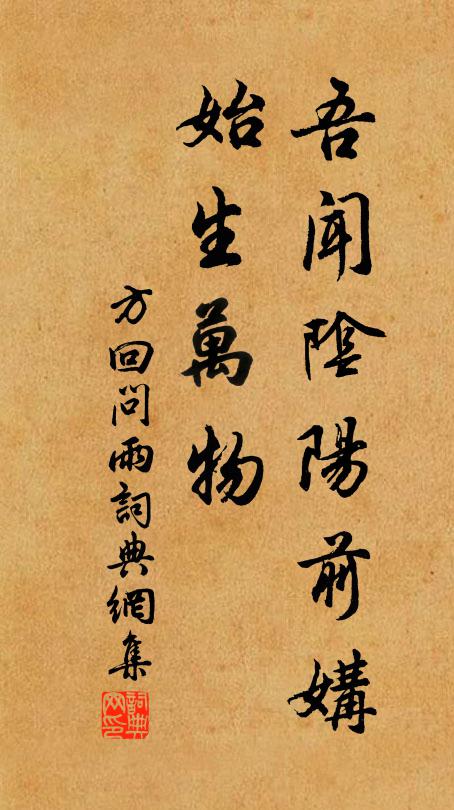 吾聞陰陽前媾
始生萬物
方回問雨詞典網集
詞典
网印